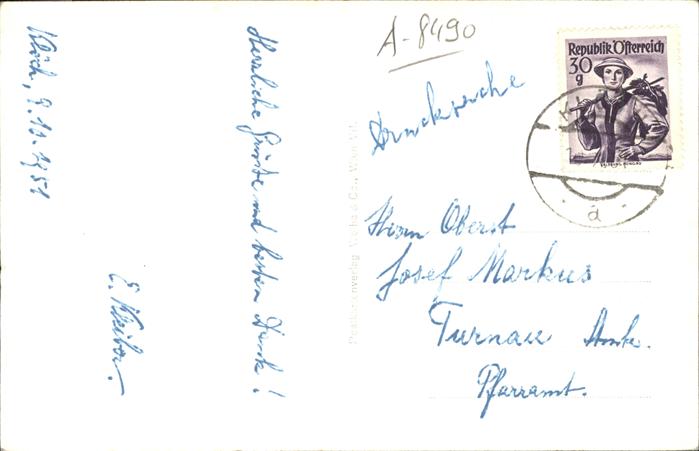 Klöch, 9.10.1951
Herzliche Grüße und besten Dank!
A-8490
Drucksache
Herrn Oberst
Josef Markus
Turnau
Pfarramt.
Republik Österreich
30
g
a
Postkartenverlag
Wien